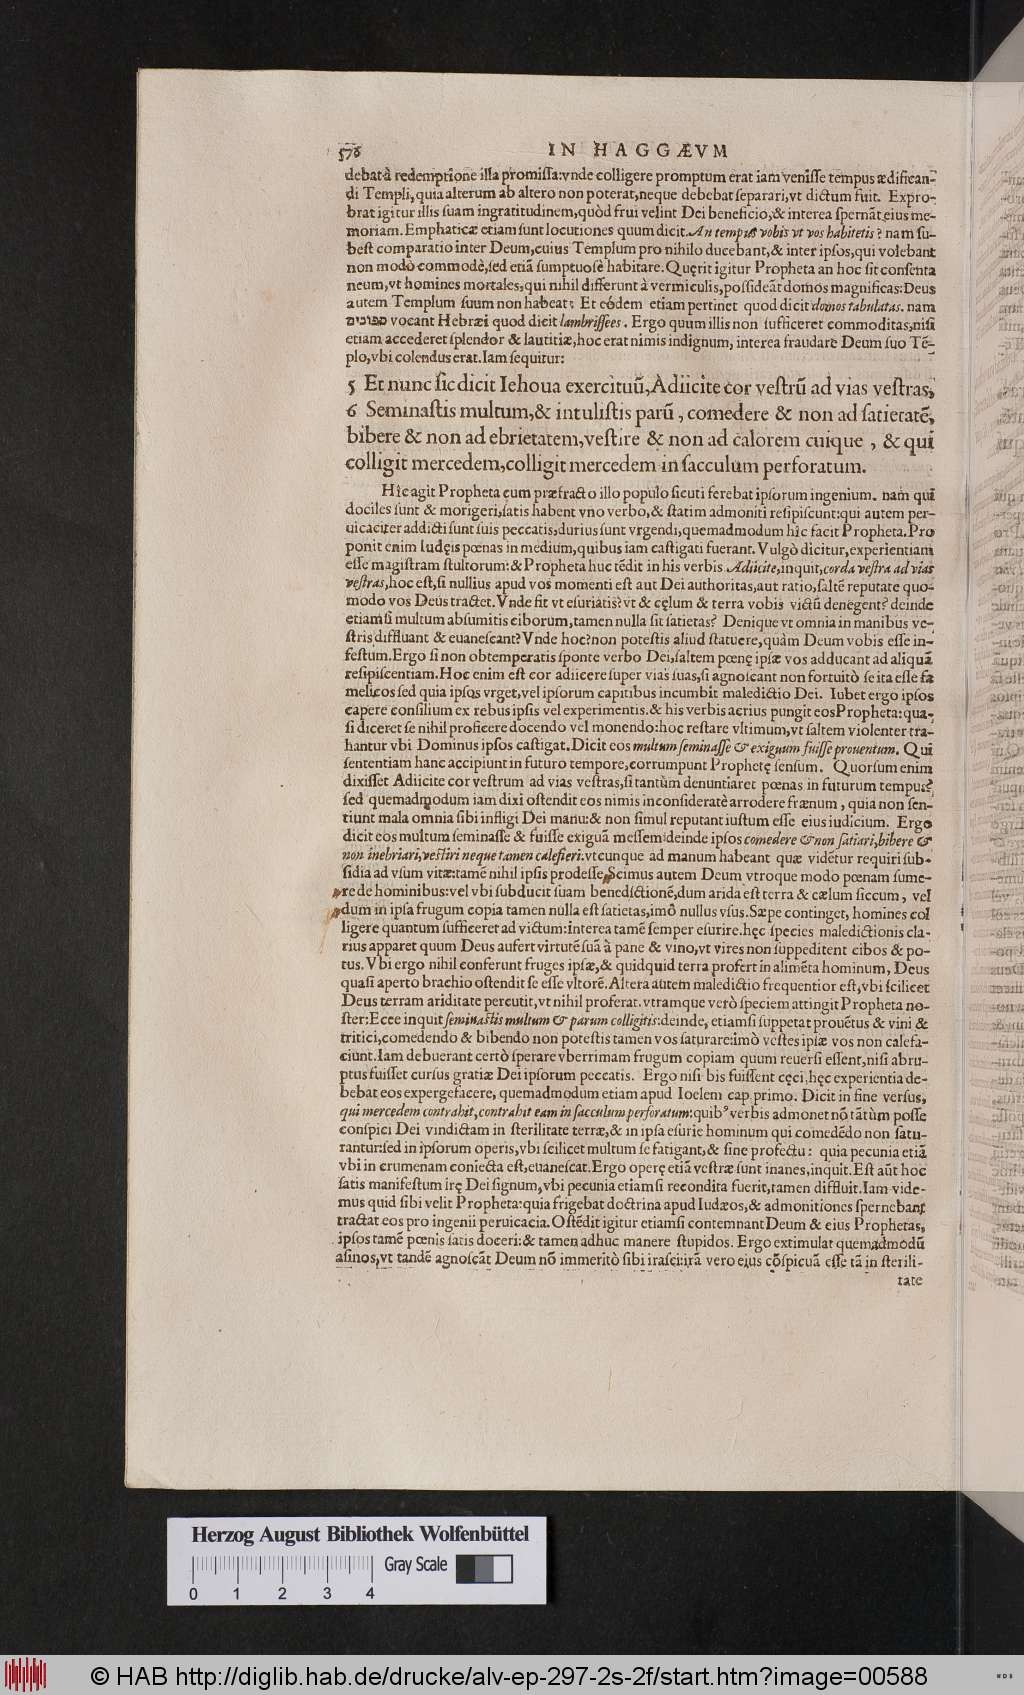 576 IN HAGGÆVM
debat à redemptione illa promiſſa: vnde colligere promptum erat iam veniſſe tempus ædifican-
di Templi, quia alterum ab altero non poterat, neque debebat ſeparari, vt dictum fuit. Expro-
brat igitur illis ſuam ingratitudinem, quòd frui velint Dei beneficio, & interea ſpernãt eius me-
moriam. Emphaticæ etiam ſunt locutiones quum dicit. An tempus vobis vt vos habitetis? nam ſu-
beſt comparatio inter Deum, cuius Templum pro nihilo ducebant, & inter ipſos, qui volebant
non modò commodè, ſed etiã ſumptuoſè habitare. Quęrit igitur Propheta an hoc ſit conſenta
neum, vt homines mortales, qui nihil differunt à vermiculis, poſſideãt domos magnificas: Deus
autem Templum ſuum non habeat? Et eódem etiam pertinet quod dicit domos tabulatas. nam
ספונים vocant Hebræi quod dicit lambriſſees. Ergo quum illis non ſufficeret commoditas, niſi
etiam accederet ſplendor & lautitiæ, hoc erat nimis indignum, interea fraudare Deum ſuo Tẽ-
plo, vbi colendus erat. Iam ſequitur:
5 Et nunc ſic dicit Iehoua exercituũ, Adiicite cor veſtrũ ad vias veſtras,
6 Seminaſtis multum, & intuliſtis parũ, comedere & non ad ſatietatẽ,
bibere & non ad ebrietatem, veſtire & non ad calorem cuique, & qui
colligit mercedem, colligit mercedem in ſacculum perforatum.
Hîc agit Propheta cum præfracto illo populo ſicuti ferebat ipſorum ingenium. nam qui
dociles ſunt & morigeri, ſatis habent vno verbo, & ſtatim admoniti reſipiſcunt: qui autem per-
uicaciter addicti ſunt ſuis peccatis, durius ſunt vrgendi, quemadmodum hîc facit Propheta. Pro
ponit enim Iudęis pœnas in medium, quibus iam caſtigati fuerant. Vulgò dicitur, experientiam
eſſe magiſtram ſtultorum: & Propheta huc tẽdit in his verbis. Adiicite, inquit, corda veſtra ad vias
veſtras, hoc eſt, ſi nullius apud vos momenti eſt aut Dei authoritas, aut ratio, ſaltẽ reputate quo-
modo vos Deus tractet. Vnde fit vt eſuriatis? vt & cęlum & terra vobis victũ denegent? deinde
etiamſi multum abſumitis ciborum, tamen nulla ſit ſatietas? Denique vt omnia in manibus ve-
ſtris diffluant & euaneſcant? Vnde hoc? non poteſtis aliud ſtatuere, quàm Deum vobis eſſe in-
feſtum. Ergo ſi non obtemperatis ſponte verbo Dei, ſaltem pœnę ipſæ vos adducant ad aliquã
reſipiſcentiam. Hoc enim eſt cor adiicere ſuper vias ſuas, ſi agnoſcant non fortuitò ſe ita eſſe fa
melicos ſed quia ipſos vrget, vel ipſorum capitibus incumbit maledictio Dei. Iubet ergo ipſos
capere conſilium ex rebus ipſis vel experimentis. & his verbis acrius pungit eos Propheta: qua-
ſi diceret ſe nihil proficere docendo vel monendo: hoc reſtare vltimum, vt ſaltem violenter tra-
hantur vbi Dominus ipſos caſtigat. Dicit eos multum ſeminaſſe & exiguum fuiſſe prouentum. Qui
ſententiam hanc accipiunt in futuro tempore, corrumpunt Prophetę ſenſum. Quorſum enim
dixiſſet Adiicite cor veſtrum ad vias veſtras, ſi tantùm denuntiaret pœnas in futurum tempus?
ſed quemadmodum iam dixi oſtendit eos nimis inconſideratè arrodere frænum, quia non ſen-
tiunt mala omnia ſibi infligi Dei manu: & non ſimul reputant iuſtum eſſe eius iudicium. Ergo
dicit eos multum ſeminaſſe & fuiſſe exiguã meſſem: deinde ipſos comedere & non ſatiari, bibere &
non inebriari, veſtiri neque tamen calefieri: vtcunque ad manum habeant quæ vidẽtur requiri ſub-
ſidia ad vſum vitæ: tamẽ nihil ipſis prodeſſe. Scimus autem Deum vtroque modo pœnam ſume-
re de hominibus: vel vbi ſubducit ſuam benedictionẽ, dum arida eſt terra & cælum ſiccum, vel
dum in ipſa frugum copia tamen nulla eſt ſatietas, imò nullus vſus. Sæpe continget, homines col
ligere quantum ſufficeret ad victum: interea tamẽ ſemper eſurire. hęc ſpecies maledictionis cla-
rius apparet quum Deus aufert virtutẽ ſuã à pane & vino, vt vires non ſuppeditent cibos & po-
tus. Vbi ergo nihil conferunt fruges ipſæ, & quidquid terra profert in alimẽta hominum, Deus
quaſi aperto brachio oſtendit ſe eſſe vltorẽ. Altera autem maledictio frequentior eſt, vbi ſcilicet
Deus terram ariditate percutit, vt nihil proferat. vtramque verò ſpeciem attingit Propheta no-
ſter: Ecce inquit ſeminaſtis multum & parum colligitis: deinde, etiamſi ſuppetat prouẽtus & vini &
tritici, comedendo & bibendo non poteſtis tamen vos ſaturare: imò veſtes ipſæ vos non calefa-
ciunt. Iam debuerant certò ſperare vberrimam frugum copiam quum reuerſi eſſent, niſi abru-
ptus fuiſſet curſus gratiæ Dei ipſorum peccatis. Ergo niſi bis fuiſſent cęci, hęc experientia de-
bebat eos expergefacere, quemadmodum etiam apud Ioelem cap. primo. Dicit in fine verſus,
qui mercedem contrahit, contrahit eam in ſacculum perforatum: quibꝰ verbis admonet nõ tãtùm poſſe
conſpici Dei vindictam in ſterilitate terræ, & in ipſa eſurie hominum qui comedẽdo non ſatu-
rantur: ſed in ipſorum operis, vbi ſcilicet multum ſe fatigant, & ſine profectu: quia pecunia etiã
vbi in crumenam coniecta eſt, euaneſcat. Ergo operę etiã veſtræ ſunt inanes, inquit. Eſt aũt hoc
ſatis manifeſtum irę Dei ſignum, vbi pecunia etiamſi recondita fuerit, tamen diffluit. Iam vide-
mus quid ſibi velit Propheta: quia frigebat doctrina apud Iudæos, & admonitiones ſpernebant
tractat eos pro ingenii peruicacia. Oſtẽdit igitur etiamſi contemnant Deum & eius Prophetas,
ipſos tamẽ pœnis ſatis doceri: & tamen adhuc manere ſtupidos. Ergo extimulat quemadmodũ
aſinos, vt tandẽ agnoſcãt Deum nõ immeritò ſibi iraſci: irã vero eius cõſpicuã eſſe tã in ſterili-
tate
Herzog August Bibliothek Wolfenbüttel
Gray Scale
0 1 2 3 4
© HAB http://diglib.hab.de/drucke/alv-ep-297-2s-2f/start.htm?image=00588
WDB